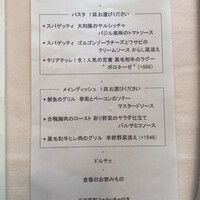 パスタ 1皿お選びください
● スパゲッティ 大和豚のサルシッチャ
バジル風味のトマトソース
● スパゲッティ ゴルゴンゾーラチーズとワサビの
クリームソース からし菜添え
● タリアテッレ(生) 人気の定番 黒毛和牛のラグー
" ボロネーゼ " (+550)
メインディッシュ 1皿お選びください
● 鮮魚のグリル 春菊とベーコンのソテー
マスタードソース
● 古種鶏肉のロースト 彩り野菜のサラダ仕立て
バルサミコソース
● 黒毛和牛ヒレ肉のグリル 季節野菜添え (+1540)
ドルチェ
食後のお飲みもの